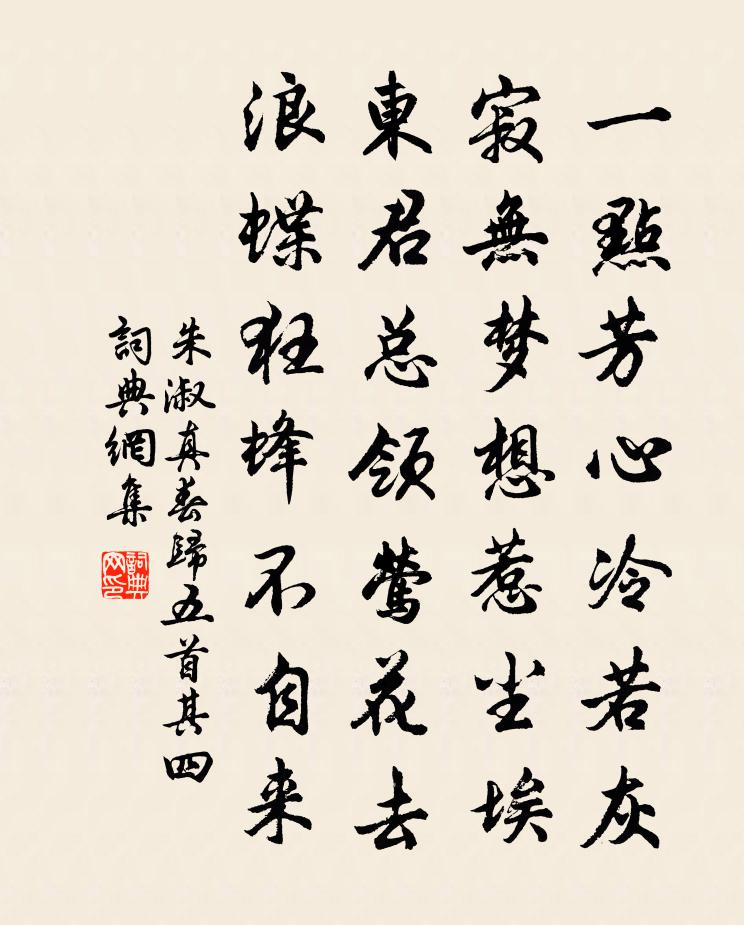 一點芳心冷若灰
寂無梦想惹尘埃
東君总领莺花去
浪蝶狂蜂不自来
朱淑真春歸五首其四
詞典網集
詞典网印